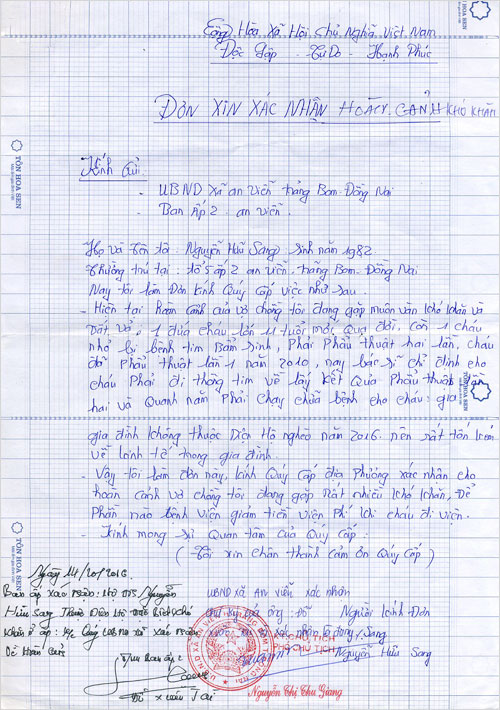 Cộng Hòa Xã Hội Chủ Nghĩa Việt Nam
Độc Lập - Tự Do - Hạnh Phúc
ĐƠN XIN XÁC NHẬN HOÀN CẢNH KHÓ KHĂN
Kính Gửi
- UBND Xã an Viễn Trảng Bom - Đồng Nai
- Ban Ấp 2 - an viễn.
Họ và tên tôi: Nguyễn Hữu Sang. sinh năm 1982
Thường trú tại: tổ 5 ấp 2 an viễn. Trảng Bom - Đồng Nai
Nay tôi làm Đơn kính Quý Cấp việc như sau
- Hiện tại hoàn cảnh của vợ chồng tôi đang gặp muôn vàn khó khăn và
vất vả, 1 đứa cháu lớn 11 tuổi mới qua đời, còn 1 cháu
nhỏ bị bệnh tim Bẩm sinh, Phải Phẫu thuật hai lần, cháu
đã Phẫu thuật lần 1 năm 2010, nay bác sĩ chỉ định cho
cháu Phải đi thông tim về lấy kết Quả Phẫu thuật
hai và Quanh năm Phải chạy chữa bệnh cho cháu. gia
gia đình không thuộc Diện Hộ nghèo năm 2016. nên rất tốn kém
về kinh tế trong gia đình.
- Vậy tôi làm đơn này, kính Quý Cấp địa Phương xác nhận cho
hoàn cảnh vợ chồng tôi đang gặp rất nhiều khó khăn, Để
Phần nào bệnh viện giảm tiền viện Phí khi cháu đi viện.
- Kính mong sự Quan tâm của Quý Cấp:
( Tôi xin chân thành cảm ơn Quý Cấp )
Ngày 14/10/2016
Ban ấp xác nhận: Nguyễn
Hữu Sang
UBND xã An Viễn xác nhận
Người Kính Đơn
T/M Ban ấp 2
PHÓ CHỦ TỊCH
Nguyễn Hữu Sang
Nguyễn Thị Thu Giang
TÔN HOA SEN
TÔN HOA SEN
TÔN HOA SEN